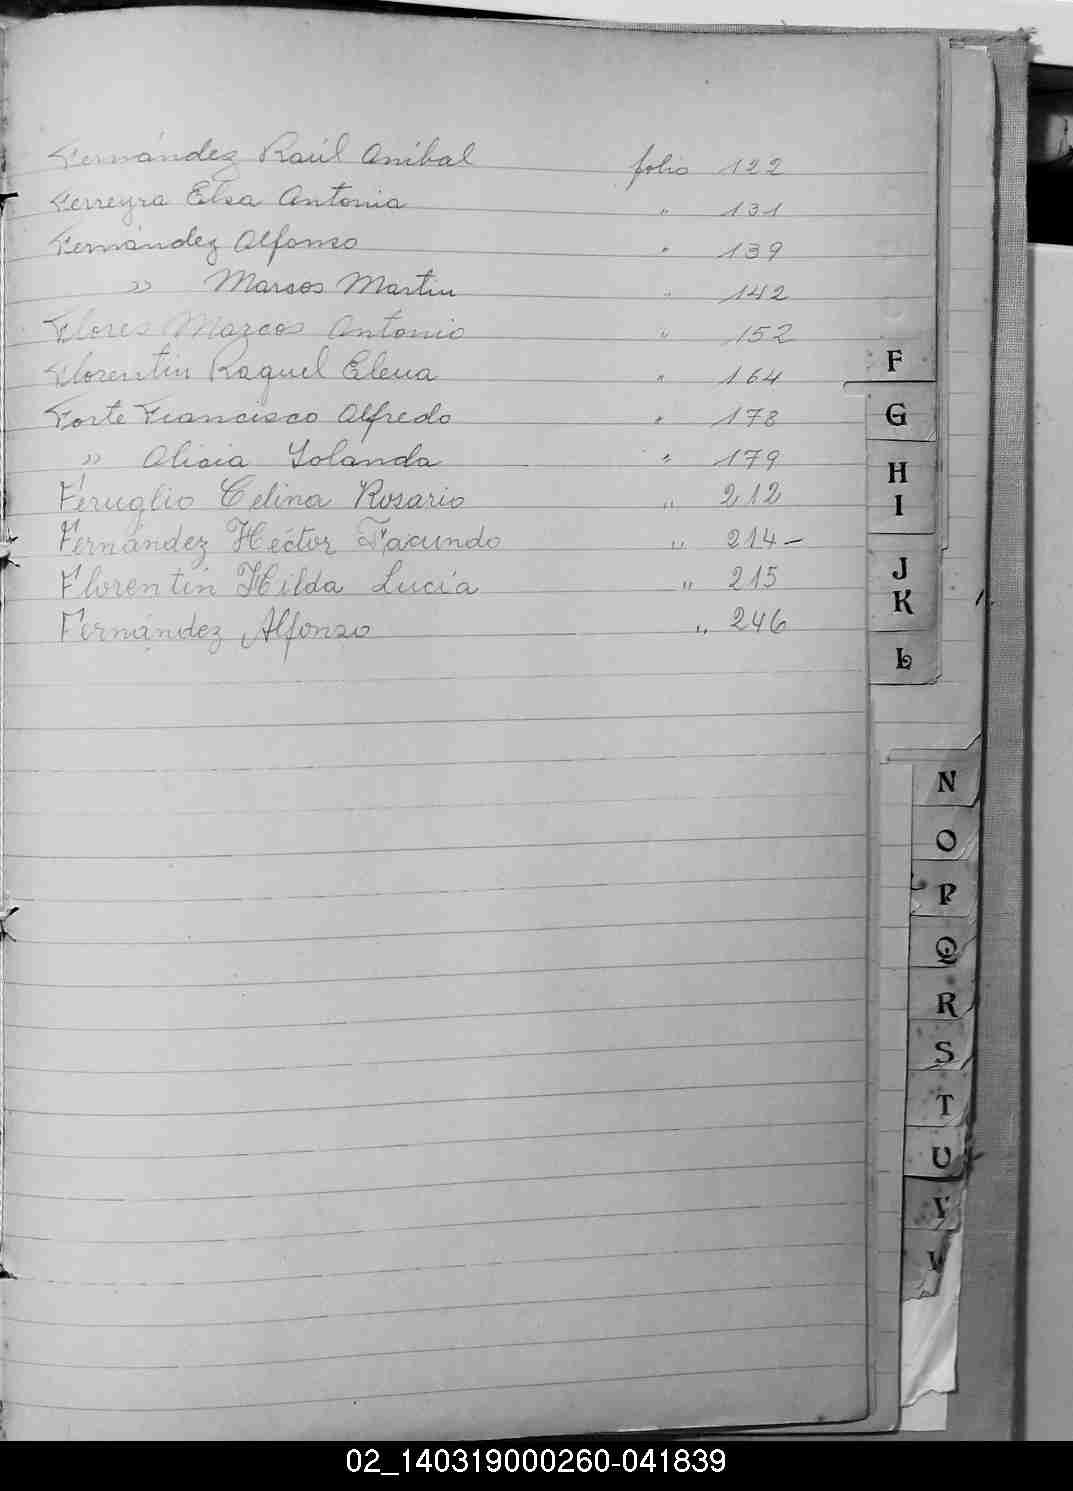 Fernández Raúl Anibal folio 122
Ferreyra Elsa Antonia " 131
Fernández Alfonso " 139
" Marcos Martin " 142
Flores Marcos Antonio " 152
Florentin Raquel Elena " 164
Forte Francisco Alfredo " 178
" Alicia Yolanda " 179
Feruglio Celina Rosario " 212
Fernández Héctor Facundo " 214-
Florentin Hilda Lucía " 215
Fernández Alfonso " 246
F
G
H
I
J
K
L
N
O
P
Q
R
S
T
U
V
W
02_140319000260-041839